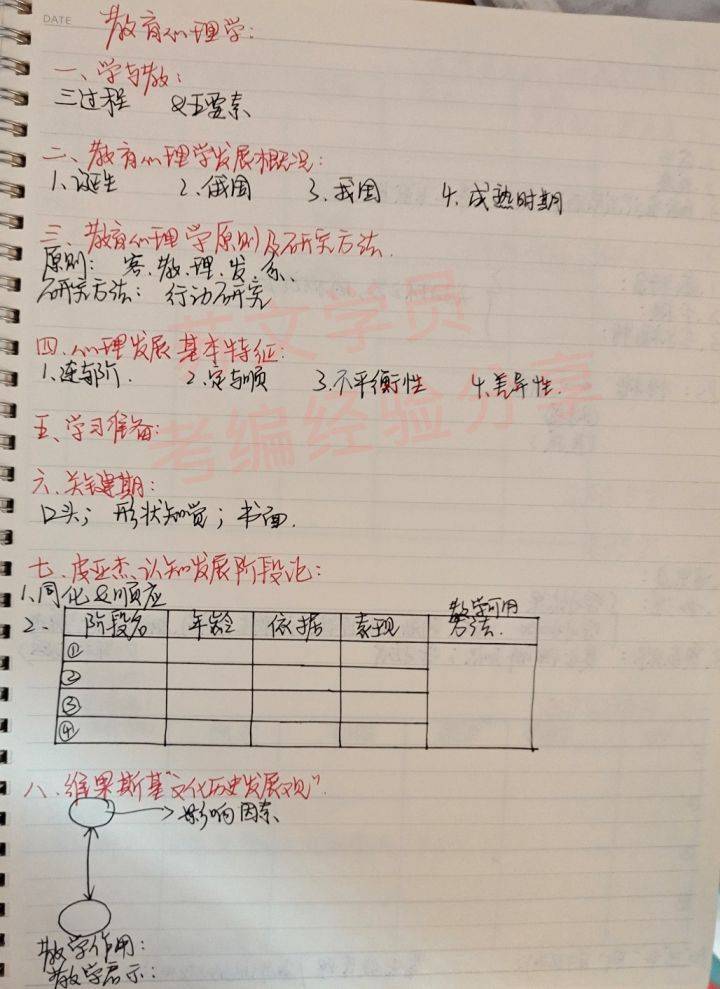 DATE
教育心理学:
一、学与教:
三过程 &五要素
二、教育心理学发展概况:
1、诞生 2、俄国 3、我国 4、成熟时期
三、教育心理学原则及研究方法.
原则: 客、教、理、发、系、
研究方法: 行动研究
四、心理发展基本特征:
1、连与阶. 2、定与顺 3、不平衡性 4、差异性.
五、学习准备:
六、关键期:
口头; 形状知觉; 书面.
七、皮亚杰认知发展阶段论:
1、同化&顺应
2、 阶段名 年龄 依据 表现 教学可用方法.
①
②
③
④
八、维果斯基“文化历史发展观”.
影响因素
教学作用:
教学启示:
文学员
考编经验分享